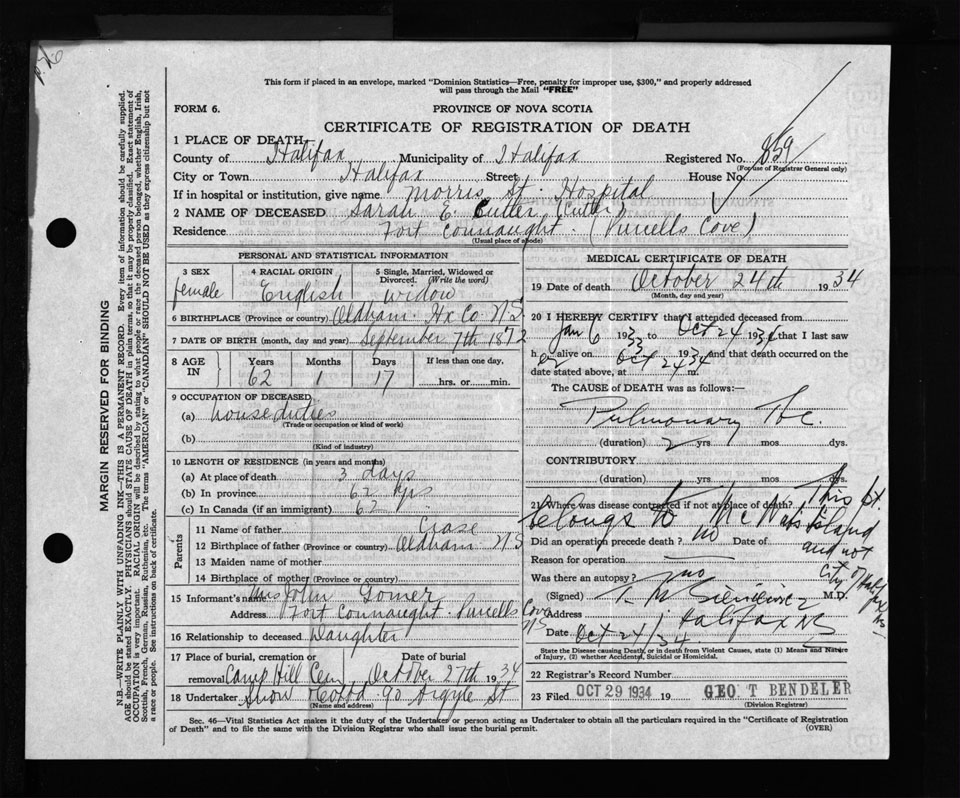 This form if placed in an envelope, marked "Dominion Statistics—Free, penalty for improper use, $300," and properly addressed
will pass through the Mail "FREE"
FORM 6.
PROVINCE OF NOVA SCOTIA
CERTIFICATE OF REGISTRATION OF DEATH
1 PLACE OF DEATH
859
County of Halifax Municipality of Halifax Registered No.
(For use of Registrar General only)
City or Town Halifax Street House No.
If in hospital or institution, give name Morris St. Hospital
2 NAME OF DECEASED Sarah E. Cutler (Cutler)
Residence Fort Connaught. (Purcells Cove)
(Usual place of abode)
PERSONAL AND STATISTICAL INFORMATION
3 SEX 4 RACIAL ORIGIN 5 Single, Married, Widowed or Divorced. (Write the word)
female English widow
6 BIRTHPLACE (Province or country) Oldham. Hx Co. N.S.
7 DATE OF BIRTH (month, day and year) September 7th 1872
8 AGE IN Years Months Days If less than one day,
62 1 17 hrs. or min.
9 OCCUPATION OF DECEASED
(a) house duties
(Trade or occupation or kind of work)
(b)
(Kind of industry)
10 LENGTH OF RESIDENCE (in years and months)
(a) At place of death 3 days
(b) In province 62 yrs
(c) In Canada (if an immigrant) 62 "
Parents
11 Name of father Crase
12 Birthplace of father (Province or country) Oldham N S
13 Maiden name of mother
14 Birthplace of mother (Province or country)
15 Informant's name Mrs John Gomer
Address Fort Connaught. Purcells Cove
N S
16 Relationship to deceased Daughter
17 Place of burial, cremation or Date of burial
removal Camp Hill Cem October 27th 1934
18 Undertaker Snow & Co Ltd 90 Argyle St
(Name and address)
MEDICAL CERTIFICATE OF DEATH
19 Date of death October 24th 1934
(Month, day and year)
20 I HEREBY CERTIFY that I attended deceased from
Jan 6 1933 to Oct 24 1934 that I last saw
her alive on Oct 24 1934 and that death occurred on the
date stated above, at m.
The CAUSE of DEATH was as follows:—
Pulmonary Tbc.
(duration) 2 yrs. mos. dys.
CONTRIBUTORY
(duration) yrs. mos. dys.
21 Where was disease contracted if not at place of death?
This pt.
belongs to McNabs Island
and not
City of Halifax
NS
Did an operation precede death? no Date of
Reason for operation
Was there an autopsy? no
(Signed) M.D.
Address Halifax NS
Date Oct 24/34
State the Disease causing Death, or in death from Violent Causes, state (1) Means and Nature
of Injury, (2) whether Accidental, Suicidal or Homicidal.
22 Registrar's Record Number
23 Filed OCT 29 1934 19 GEO T BENDELER
(Division Registrar)
Sec. 46—Vital Statistics Act makes it the duty of the Undertaker or person acting as Undertaker to obtain all the particulars required in the "Certificate of Registration
of Death" and to file the same with the Division Registrar who shall issue the burial permit.
(OVER)
MARGIN RESERVED FOR BINDING
N.B.—WRITE PLAINLY WITH UNFADING INK—THIS IS A PERMANENT RECORD. Every item of information should be carefully supplied.
AGE should be stated EXACTLY. PHYSICIANS should STATE CAUSE OF DEATH in plain terms, so that it may be properly classified. Exact statement of
OCCUPATION is very important. RACIAL ORIGIN will be described by stating to what people or race the deceased person belonged, whether English, Irish,
Scottish, French, German, Russian, Ruthenian, etc. The terms "AMERICAN" or "CANADIAN" SHOULD NOT BE USED as they express citizenship but not
a race or people. See instructions on back of certificate.